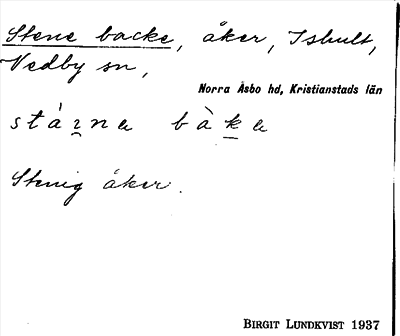 Stene backe, åker, Ishult,
Vedby sn,
Norra Åsbo hd, Kristianstads län
Stenig åker.
BIRGIT LUNDKVIST 1937